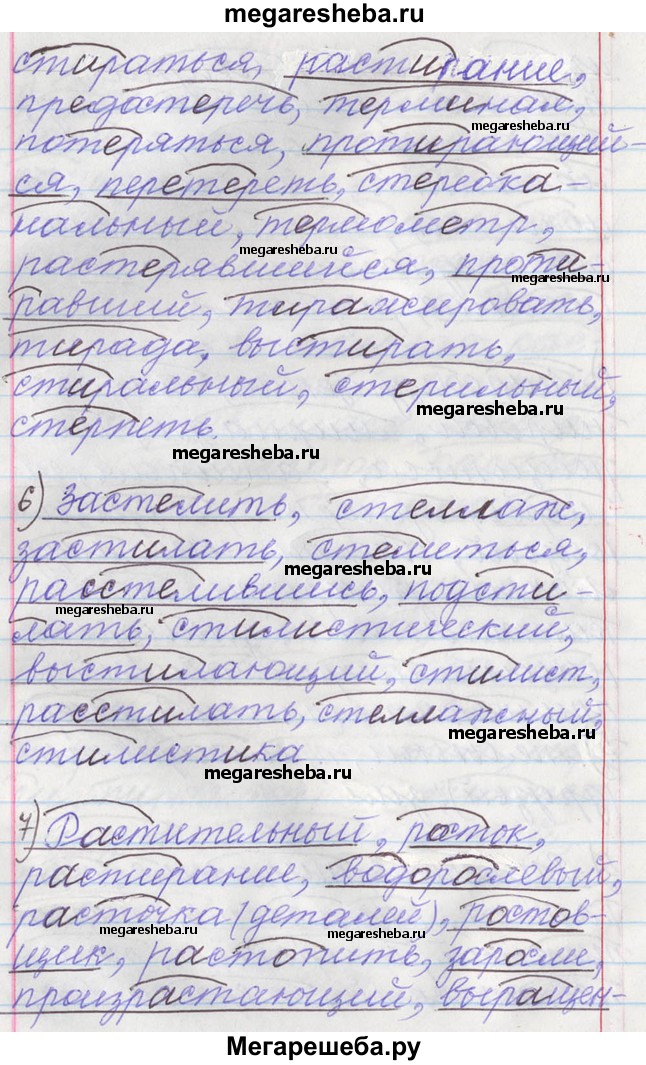 megaresheba.ru
стираться, настирание,
предостеречь, терминал,
megaresheba.ru
потеряться, протирающий-
ся, перетереть, стереока-
нальный, термометр,
megaresheba.ru
растерявшийся, проти-
megaresheba.ru
равший, тиражировать,
тирада, выстирать,
стиральный, стерильный,
megaresheba.ru
стерпеть.
megaresheba.ru
6) Застелить, стеллаж,
застилать, стелиться,
megaresheba.ru
расстелившись, подсти-
megaresheba.ru
лать, стилистический,
выстилающий, стилист,
расстилать, стеллажный,
стилистика
megaresheba.ru
7) Растительный, росток,
растирание, водорослевый,
расточка (деталей), ростов-
megaresheba.ru
megaresheba.ru
щик, растопить, заросли,
произрастающий, выращен-
Мегарешеба.ру